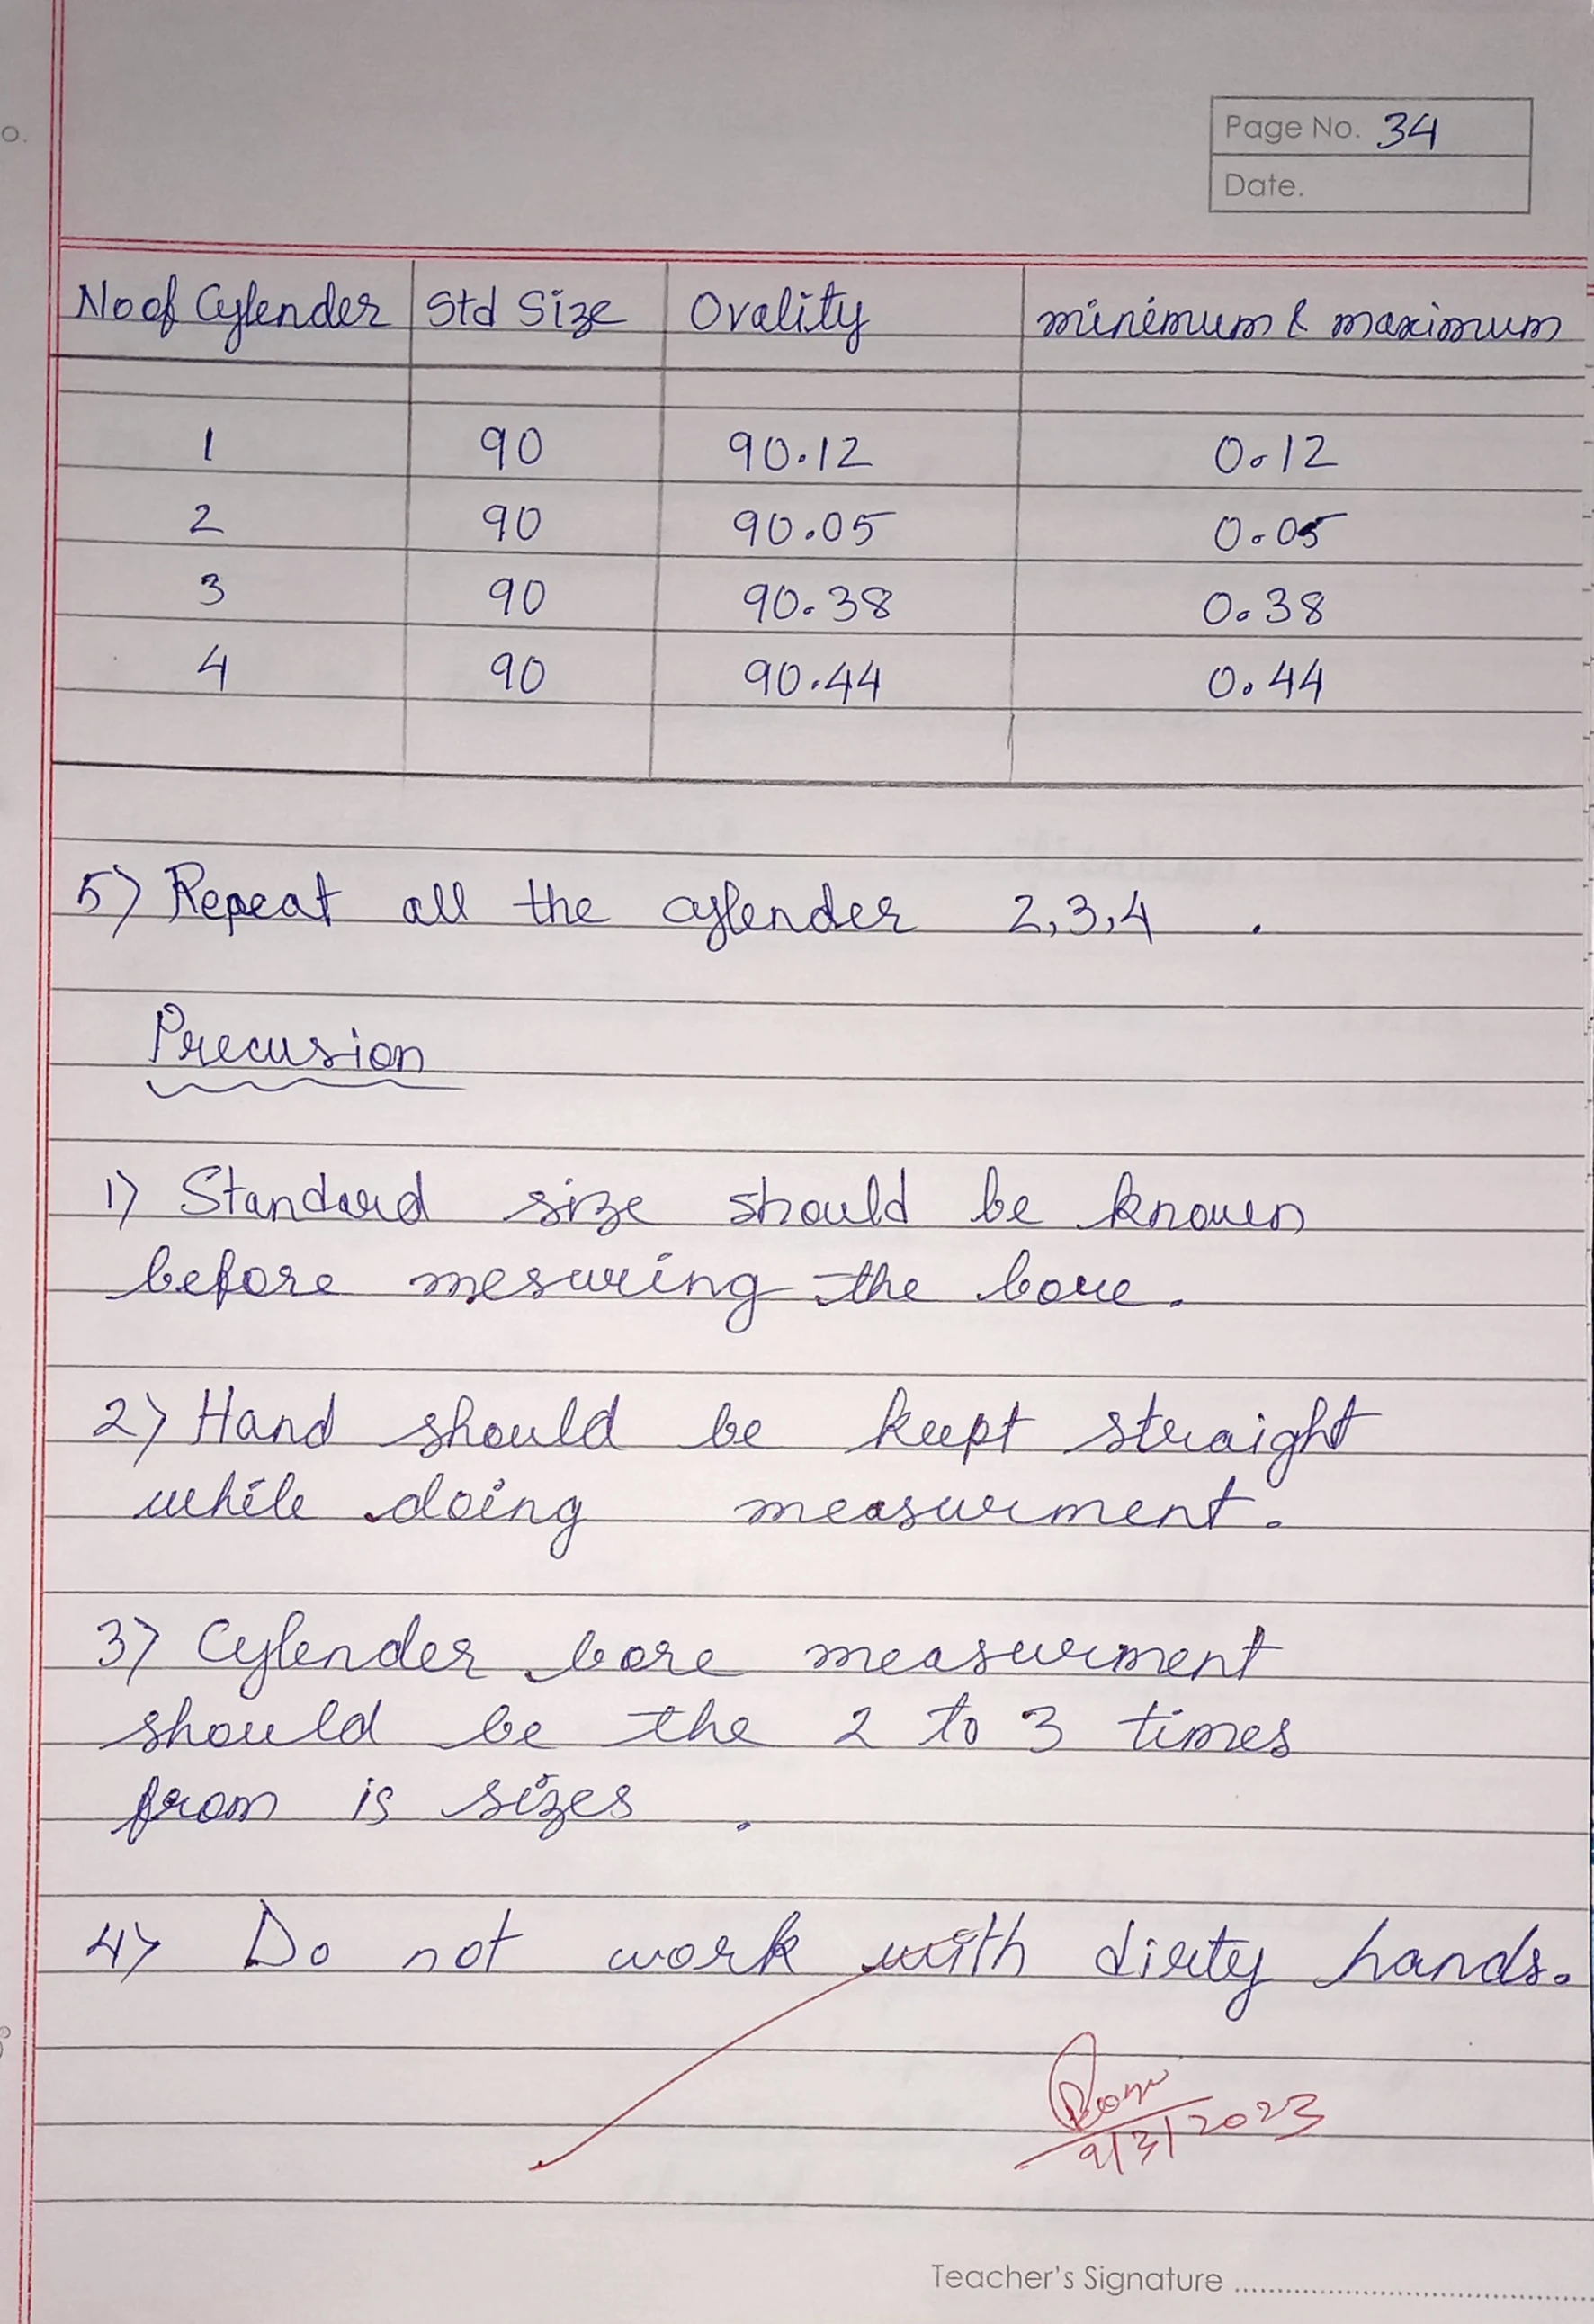 Page No. 34
Date.
No of Cylender Std Size Ovality minimum & maximum
1 90 90.12 0.12
2 90 90.05 0.05
3 90 90.38 0.38
4 90 90.44 0.44
5) Repeat all the cylender 2,3,4 .
Precusion
1) Standard size should be known
before mesuring the bore.
2) Hand should be kept straight
while doing measurment.
3) Cylender bore measurment
should be the 2 to 3 times
from is sizes .
4) Do not work with dirty hands.
9/3/2023
Teacher's Signature